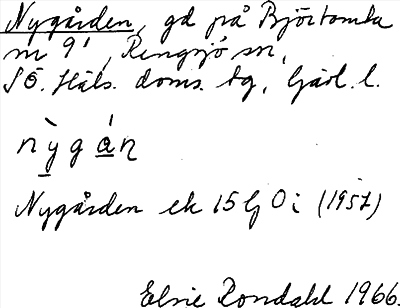 Nygården, gd på Björtomta
nr 9¹, Rengsjö sn,
SÖ. Häls. doms. tg, Gävl. l.
nỳgán
Nygården ek 15Gj0i (1957)
Elsie Rondahl 1966.